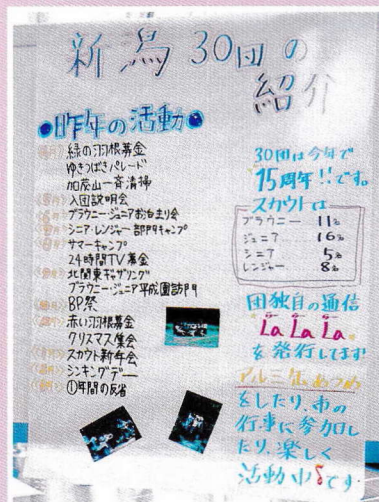 新潟30団の
紹介
昨年の活動
緑の羽根募金
ゆきつばきパレード
加茂山一斉清掃
入団説明会
ブラウニー・ジュニアお泊まり会
シニア・レンジャー部門キャンプ
サマーキャンプ
24時間TV募金
北関東ギャザリング
ブラウニー・ジュニア平成園訪門
BP祭
赤い羽根募金
クリスマス集会
スカウト新年会
シンキングデー
①年間の反省
30団は今年で
15周年!!です。
スカウトは
ブラウニー 11名
ジュニア 16名
シニア 5名
レンジャー 8名
団独自の通信
La La La
を発行してます
アルミ缶あつめ
をしたり、市の
行事に参加し
たり、楽しく
活動中です。